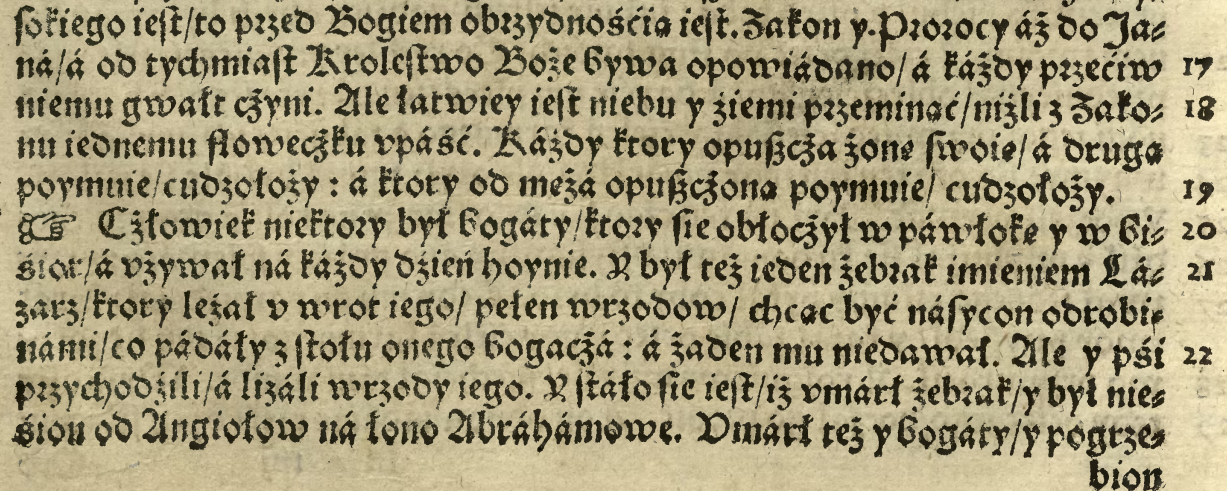 ſokiego ieſt/to przed Bogiem obrzydnośćią ieſt. Zakon y Prorocy áż do Ja⸗
ná/á od tychmiaſt Kroleſtwo Boże bywa opowiádano/ á káżdy przećiw 17
niemu gwałt cżyni. Ale łatwiey ieſt niebu y źiemi przeminąć/niżli z Zako⸗ 18
nu iednemu ſloweczku vpáść. Káżdy ktory opuſzcża żonę ſwoię/á drugą
poymuie/cudzołoży : á ktory od mężá opuſzcżoną poymuie/ cudzołoży. 19
☞ Cżłowiek niektory był bogáty/ktory ſię obłocżył w páwłokę y w bi⸗ 20
śior/á vżywał ná káżdy dźień hoynie. Y był też ieden żebrak imieniem Lá⸗ 21
zarz/ktory leżał v wrot iego/ pełen wrzodow/ chcąc być náſycon odrobi⸗
námi/co pádáły z ſtołu onego bogacżá : á żaden mu niedawał. Ale y pśi 22
przychodźili/á lizáli wrzody iego. Y ſtáło ſię ieſt/iż vmárł żebrak/y był nie⸗
śion od Angiołow ná łono Abráhámowe. Vmárł też y bogáty/y pogrze⸗
bion